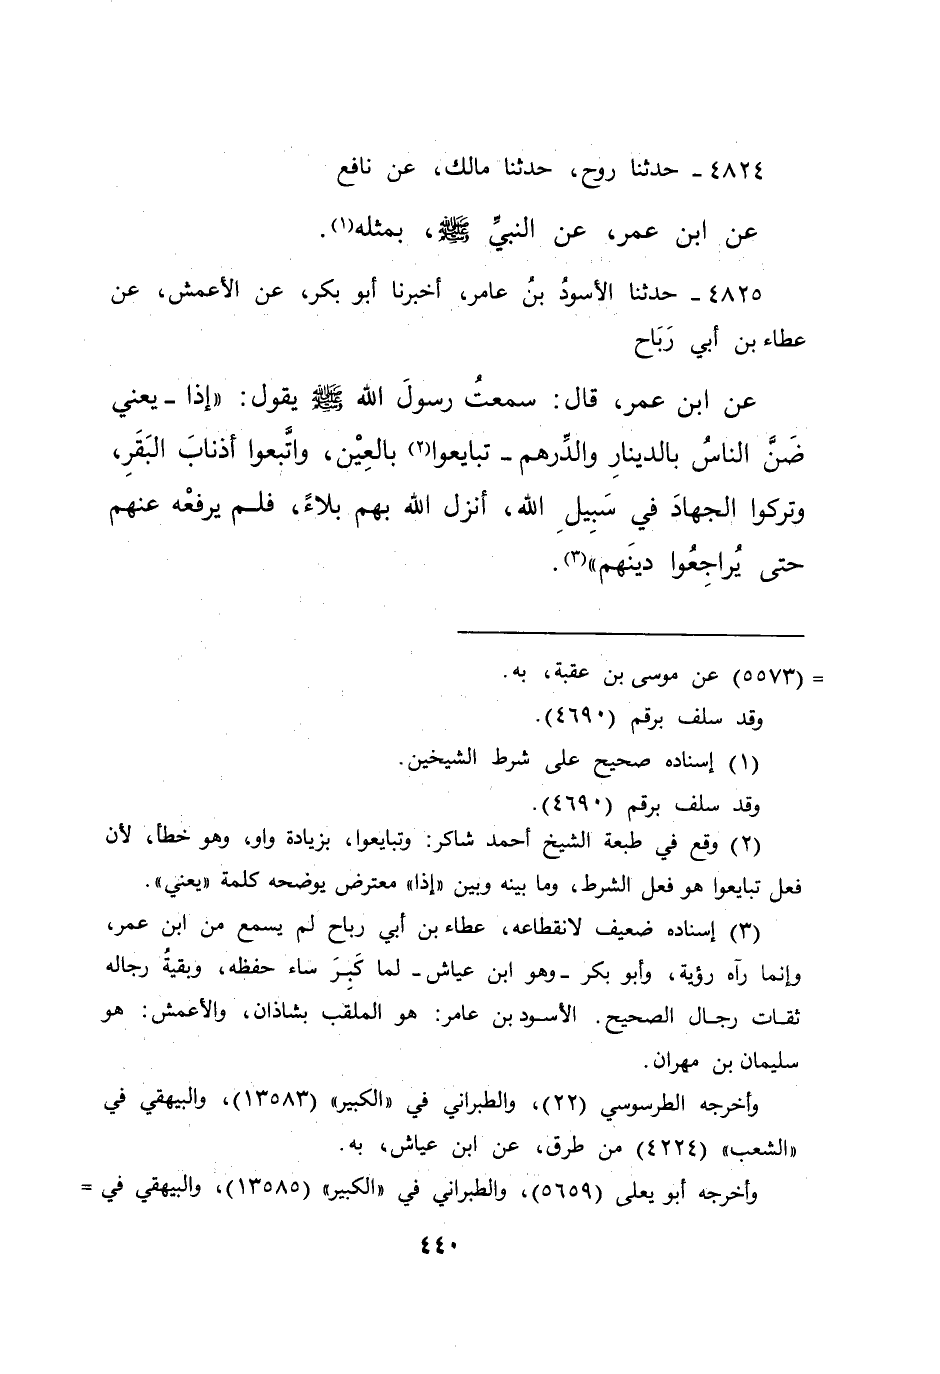 ٤٨٢٤ ـ حدثنا روح، حدثنا مالك، عن نافع
عن ابن عمر، عن النبيِّ ﷺ، بمثله(١).
٤٨٢٥ ـ حدثنا الأسودُ بنُ عامر، أخبرنا أبو بكر، عن الأعمش، عن
عطاء بن أبي رَبَاح
عن ابن عمر، قال: سمعتُ رسولَ الله ﷺ يقول: «إذا ـ يعني
ضَنَّ الناسُ بالدينارِ والدِّرهم ـ تبايعوا(٢) بالعِيْن، واتَّبعوا أذنابَ البَقَرِ،
وتركوا الجهادَ في سَبِيلِ الله، أنزل الله بهم بلاءً، فلم يرفعْه عنهم
حتى يُراجِعُوا دينَهم»(٣).
= (٥٥٧٣) عن موسى بن عقبة، به.
وقد سلف برقم (٤٦٩٠).
(١) إسناده صحيح على شرط الشيخين.
وقد سلف برقم (٤٦٩٠).
(٢) وقع في طبعة الشيخ أحمد شاكر: وتبايعوا، بزيادة واو، وهو خطأ، لأن
فعل تبايعوا هو فعل الشرط، وما بينه وبين «إذا» معترض يوضحه كلمة «يعني».
(٣) إسناده ضعيف لانقطاعه، عطاء بن أبي رباح لم يسمع من ابن عمر،
وإنما رآه رؤية، وأبو بكر ـ وهو ابن عياش ـ لما كَبِرَ ساء حفظه، وبقيةُ رجاله
ثقات رجال الصحيح. الأسود بن عامر: هو الملقب بشاذان، والأعمش: هو
سليمان بن مهران.
وأخرجه الطرسوسي (٢٢)، والطبراني في «الكبير» (١٣٥٨٣)، والبيهقي في
«الشعب» (٤٢٢٤) من طرق، عن ابن عياش، به.
وأخرجه أبو يعلى (٥٦٥٩)، والطبراني في «الكبير» (١٣٥٨٥)، والبيهقي في =
٤٤٠